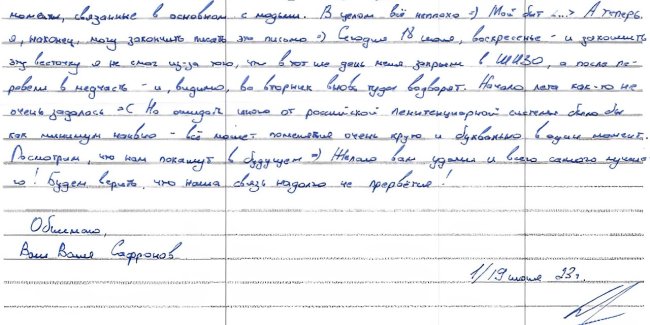 моменты, связанные в основном с людьми. В целом всё неплохо =) Мой быт ...> А теперь,
я, наконец, могу закончить писать это письмо =) Сегодня 18 июня, воскресенье - и закончить
эту весточку я не смог из-за того, что в тот же день меня закрыли в ШИЗО, а после пе-
ревели в медчасть - и, видимо, во вторник вновь туда водворят. Начало лета как-то не
очень задалось =С Но ожидать иного от российской пенитенциарной системы было бы
как минимум наивно - всё может поменяться очень круто и буквально в один момент.
Посмотрим, что нам покажут в будущем =) Желаю вам удачи и всего самого лучше-
го! Будем верить, что наша связь надолго не прервётся!
Обнимаю,
Ваш Ваня Сафронов
1/19 июня 23 г.